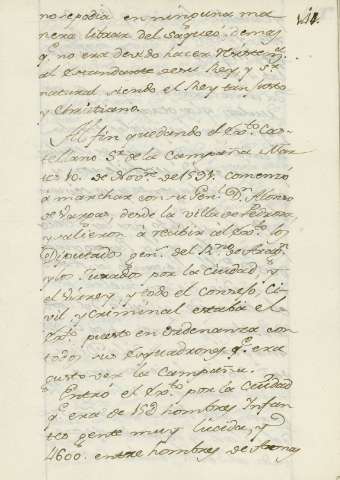 no se podia en ninguna ma
nera librar del saqueo. demas
q.e no era devido hacer
al Estandarte de su Rey, y S.r
natural siendo el Rey tan justo
y Christiano.
Al fin quedando el Ex.to Cas-
tellano S.r de la Campaña Mar-
tes 10. de Nov.re de 1591. comenzó
a marchar con su Gen.l D.n Alonso
de Vargas, desde la villa de Pedrosa,
y salieron à recibir al Ex.to los
Diputados gen.s del R.no de Arag.n
y los Jurados por la ciudad, y
el Virrey, y todo el consejo, Ci-
vil y Criminal estaba el
Ex.to puesto en ordenanza con
todos sus Esquadrones q.e era
gusto ver la Campaña.
Entró el Ex.to por la Ciudad
q.e era de hombres Infan-
tes gente muy lucida, y
4600. entre hombres de Armas